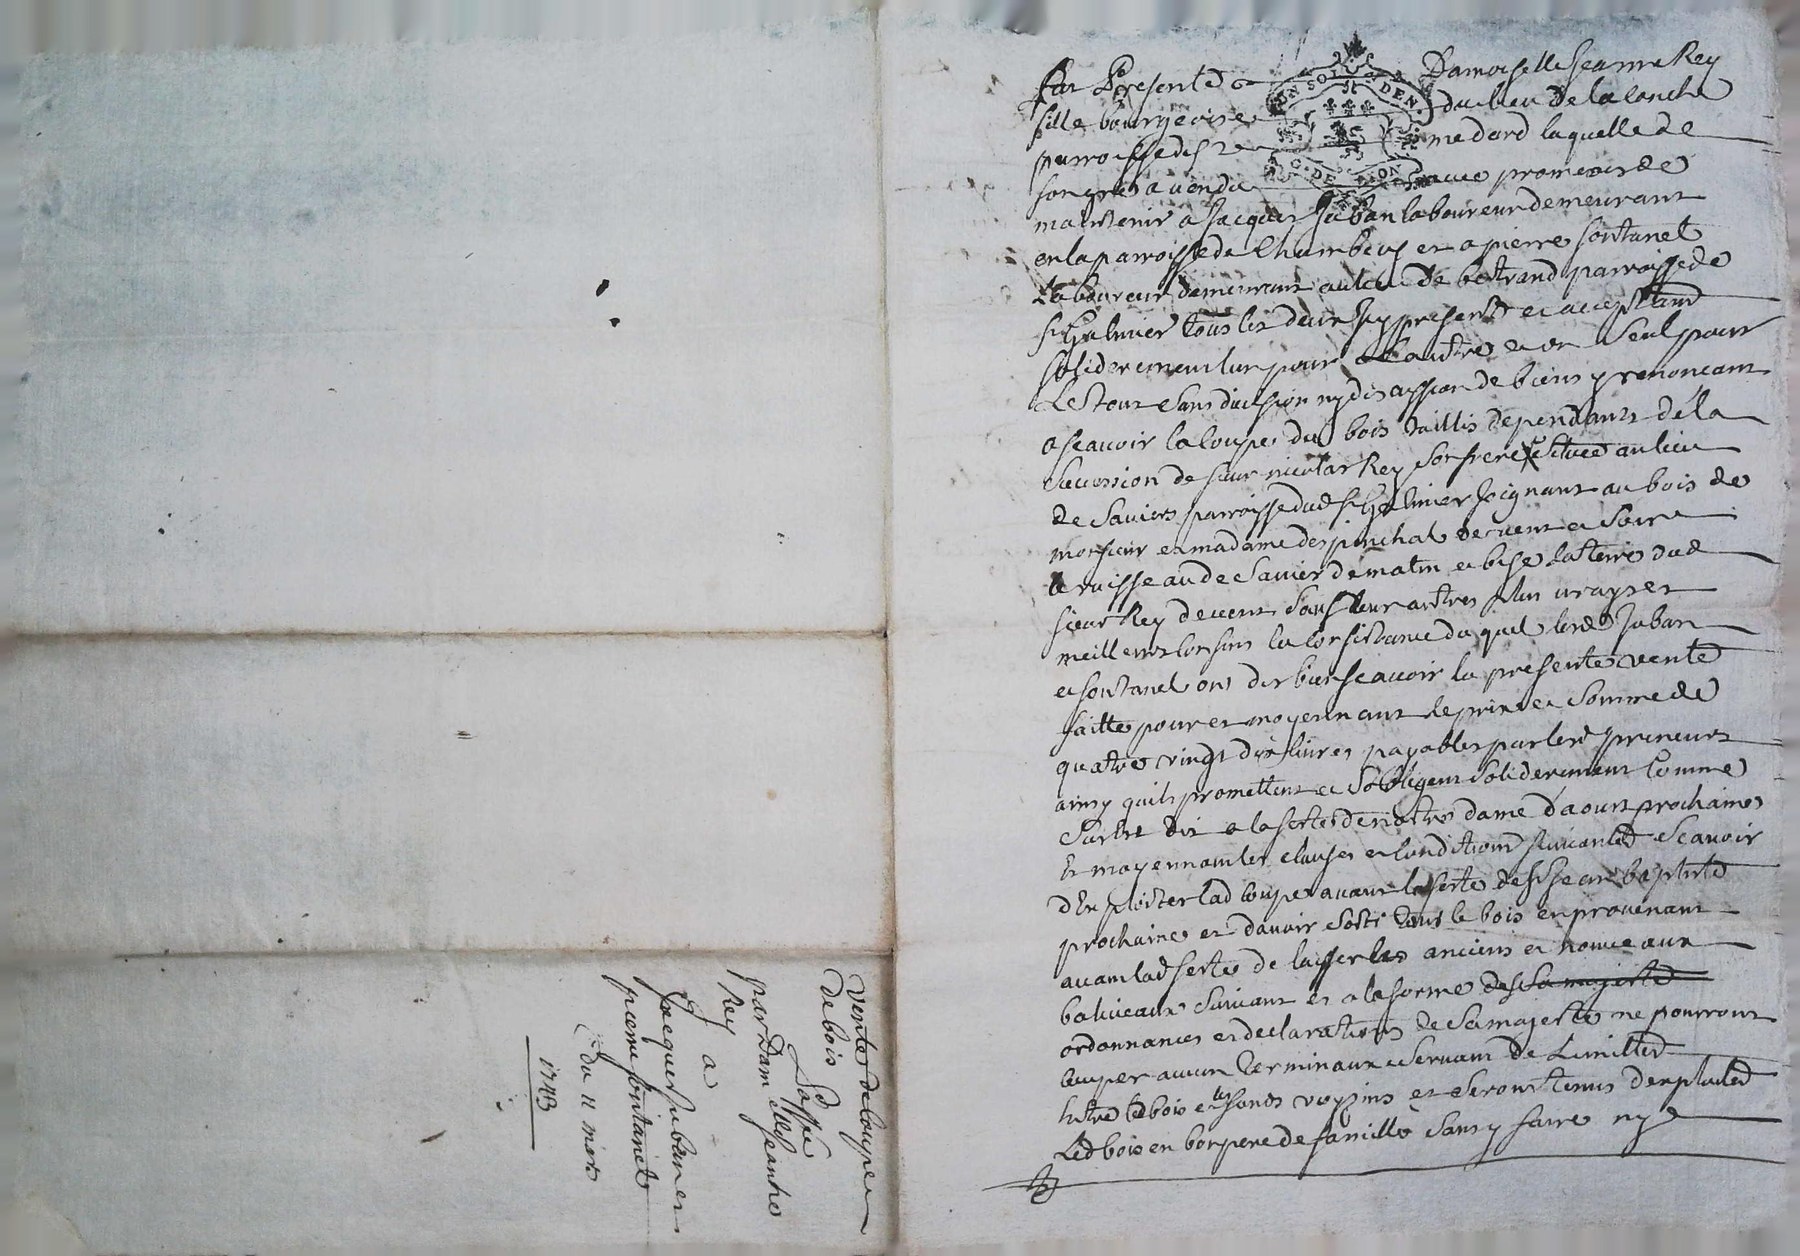 fut Presente Damoiselle Jeanne Rey
fille bourgeoise du lieu de la conche
parroisse de st medard laquelle de
son gré a vendu avec promesses de
maintenir a Jacques Juban laboureur demeurant
en la parroisse de Chambeuf et a pierre fontanel
laboureur demeurant au lieu de bertrand parroisse de
st Galmier tous les deux Icy presents et acceptand
soliderement lun pour lautre et un seul pour
le tout sans division ny discussion de biens y renoncant
a scavoir la coupe du bois taillis dependants de la
succession de sieur nicolas Rey son frere situee au lieu
de Saviers parroisse dud st Galmier Joignant au bois de
monsieur et madame despinchal de vent et soir
le ruisseau de Savier de matin et bise la terre dud
sieur Rey de vent sauf leur autres plus vrays et
meilleurs confins la consistance du quel lesd Juban
et fontanel ont dit bien scavoir la presente vente
faitte pour et moyennant le prix et somme de
quatre vingt dix livres payables par lesd preneurs
ainsy quils promettent et sobligent soliderement comme
sus est dit a la feste de notre dame daoust prochaine
Et moyennant les clauses et conditions suivantes scavoir
dExploiter lad coupe avant la feste de st Jean baptiste
prochaine et davoir sorti tous le bois en provenant
avant lad feste de laisser les anciens et nouveaux
baliveaux suivant et a la forme des sa majesté
ordonnances et declarations de sa majesté ne pourront
couper aucun terminaux servant de Limittes
Entre led bois et les fonds voysins et seront tenus dexploiter
Led bois en bon pere de famille sans y faire ny
Vente de coupe
de bois
passé
par Dam elle Jeanne
Rey
a
Jacques Juban et
pierre fontanel
du 11 mars
1743